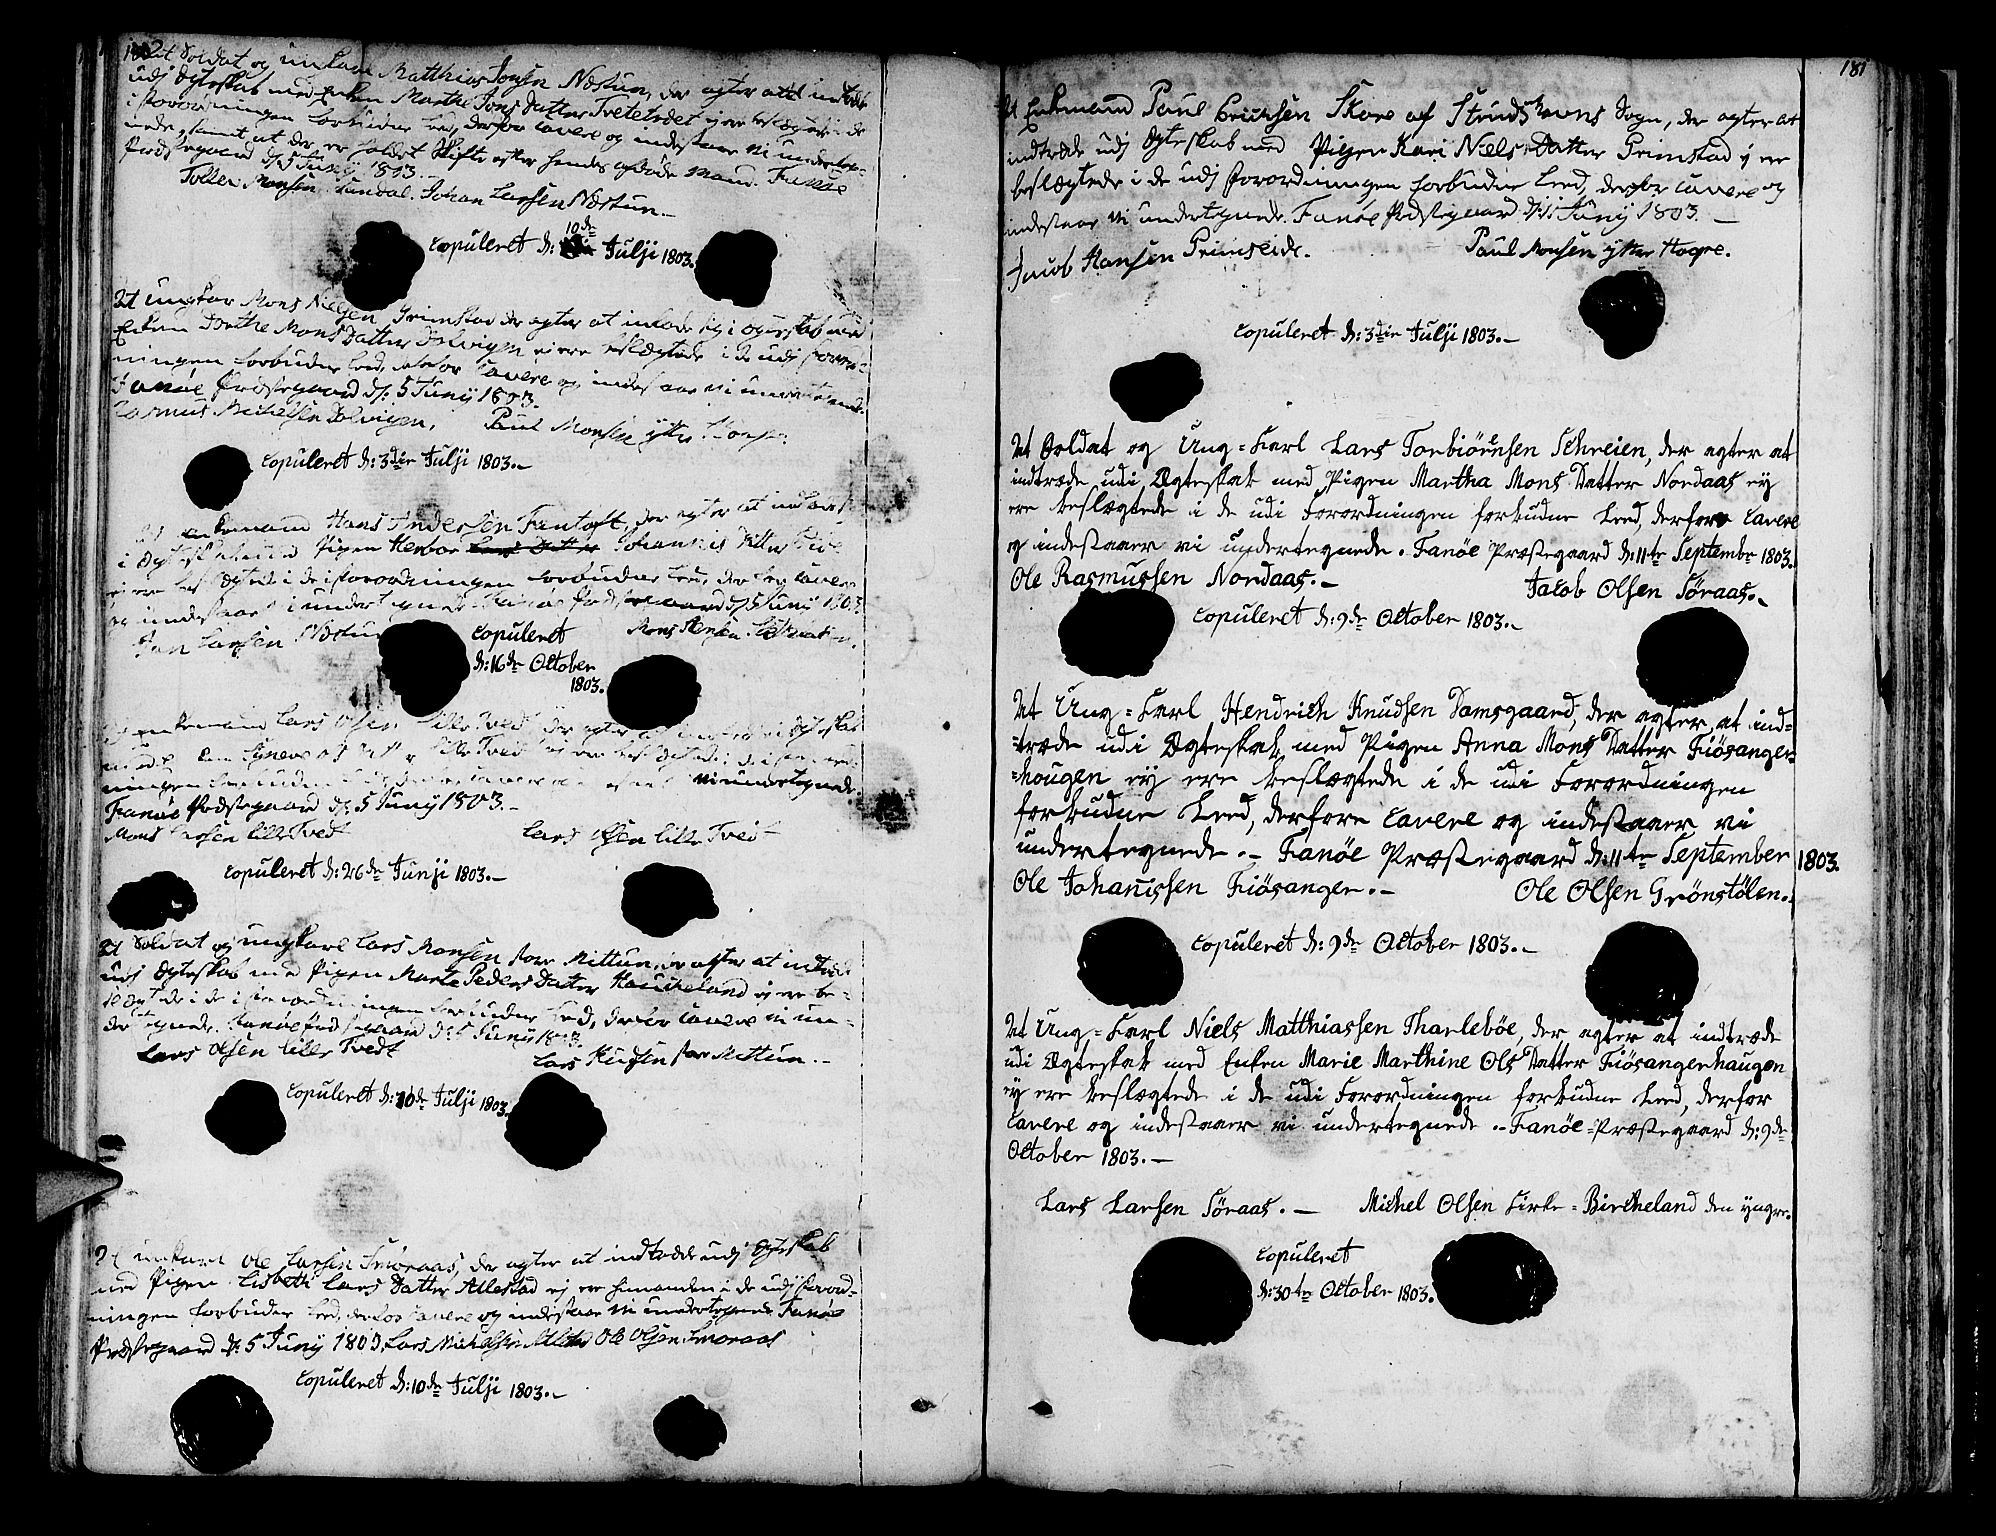 At Soldat og unkarl Matthias Jonsen Nestun, der agter att indtræde
udj Ægteskab med Enken Marthe Jons Datter Tvetetædet ej ere beslægtede i de
i Forordningen forbudne Leed, derfor Cavere og indestaae vi underteg-
nede, samt at der er holdet Skifte efter hendes afdøde Mand. Fanøe
Præstegaard d: 5 Junij 1803.
Tollev Monsen Sundal. Johan Larssen Nestun.
Copuleret d: 10de Julji 1803.
At ungkar Mons Nielsen Grimstad der agter at indlade sig i Ægteskab med
Enken Dorthe Mons Datter Dolvigen ej ere beslægtede i de udj Forord-
ningen forbudne Leed, derfor Cavere og indestaae vi undertegnede
Fanøe Præstegaard d: 5 Junij 1803.
Rasmus Michelsen Dolvigen, Paul Monsen ytter
Copuleret d: 3die Julji 1803.
At enkemand Hans Andersen Fantoft, der agter at indlade sig
i Ægteskab med Pigen Herbor Johannis Datter
ej ere beslægtede i de i Forordningen forbudne Leed, derfor Cavere
og indestaae vi undertegnede Fanøe Præstegaard d: 5 Junij 1803
Jan Larsen Nestun Mons
Copuleret
d: 16de October
1803.
At enkemand Lars Olsen Lille Tvedt der agter at indtræde i Ægteskab
med Lille Tvedt ej ere beslægtede i de i Forord-
ningen forbudne Leed, derfor Cavere vi undertegnede.
Fanøe Præstegaard d: 5 Junij 1803.
Mons Larsen Lille Tvedt Lars Olsen Lille Tvedt
Copuleret d: 26de Junji 1803.
At Soldat og ungkarl Lars Monsen store Mittun, der agter at indtræde
udj Ægteskab med Pigen Marte Peders Datter Houckeland ej ere be-
slægtede i de i Forordningen forbudne Leed, derfor Cavere vi un-
dertegnede. Fanøe Præstegaard d: 5 Junij 1803.
Lars Olsen Lille Tvedt Lars Knudsen store Mittun.
Copuleret d: 10de Julji 1803.
At unkarl Ole Larsen Smøraas, der agter at indtræde udj Ægteskab
med Pigen Lisbeth Lars Datter Allestad ej ere hinanden i de udj Forord-
ningen forbudne Leed, derfor Cavere og indestaae vi undertegnede Fanøe
Præstegaard d: 5 Junij 1803. Lars Michelsen Allestad Ole Olsen Smøraas
Copuleret d: 10de Julji 1803.
181
At Enkemand Paul Erichsen Skare af Strudshavns Sogn, der agter at
indtræde udj Ægteskab med Pigen Kari Niels Datter Grimstad ej ere
beslægtede i de udj Forordningen forbudne Leed, derfor Cavere og
indestaae vi undertegnede. Fanøe Præstegaard d: 11 Junij 1803.
Jacob Hansen Grimseide. Paul Monsen ytter Hogre.
Copuleret d: 3die Julji 1803.
At Soldat og Ung-Karl Lars Torbiørnsen Schreien, der agter at
indtræde udi Ægteskab med Pigen Martha Mons Datter Nordaas ey
ere beslægtede i de udi Forordningen forbudne Leed, derfore Cavere
og indestaaer vi undertegnede. Fanöe Præstegaard d: 11te Septembr 1803.
Ole Rasmussen Nordaas. Jacob Olsen Söraas.
Copuleret d: 9de October 1803.
At Ung-Karl Hendrich Knudsen Damsgaard, der agter at ind-
-træde udi Ægteskab med Pigen Anna Mons Datter Fiösanger-
-hougen ey ere beslægtede i de udi Forordningen
forbudne Leed, derfore Cavere og indestaaer vi
undertegnede. Fanöe Præstegaard d: 11te September 1803.
Ole Johanissen Fiösanger. Ole Olsen Grönstölen.
Copuleret d: 9de October 1803.
At Ung-Karl Niels Matthiassen Tharleböe, der agter at indtræde
udi Ægteskab med Enken Marie Marthine Ols Datter Fiösangerhaugen
ey ere beslægtede i de udi Forordningen forbudne Leed, derfor
Cavere og indestaaer vi undertegnede. Fanöe-Præstegaard d: 9de
October 1803.
Lars Larsen Söraas. Michel Olsen Kirke-Bircheland den yngre.
Copuleret
d: 30te October 1803.